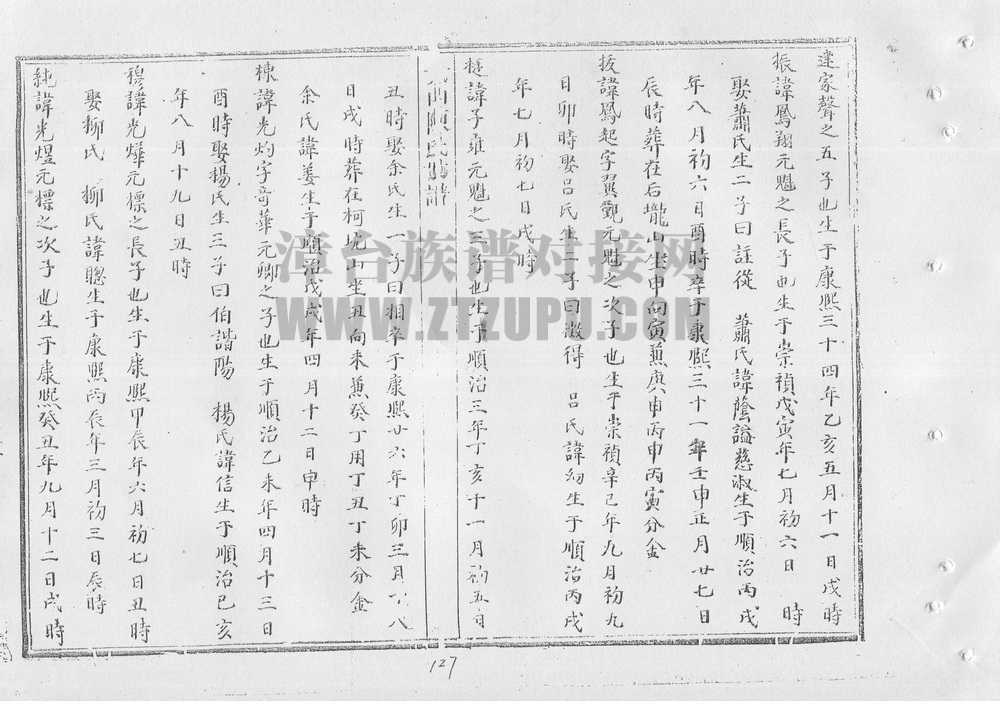 建家聲之五子也生于康熙三十四年乙亥五月十一日戌時
振諱鳳翔元魁之長子也生于崇禎戊寅年七月初六日 時
娶蕭氏生二子曰註從 蕭氏諱蔭謚慈淑生于順治丙戌
年八月初六日酉時卒于康熙三十一年壬申正月廿七日
辰時葬在后壠山坐申向寅兼庚申丙申丙寅分金
拔諱鳳起字翼觀元魁之次子也生于崇禎辛巳年九月初九
日卯時娶呂氏生二子曰徵得 呂氏諱幼生于順治丙戌
年七月初七日戌時
槌諱子雍元魁之三子也生于順治三年丁亥十一月初五日
陳氏譜
丑時娶余氏生一子曰相卒于康熙廿六年丁卯三月 八
日戌時葬在柯坑山坐丑向未兼癸丁用丁丑丁未分金
余氏諱姜生于順治戊戌年四月十二日申時
棟諱光灼字奇華元卿之子也生于順治乙未年四月十三日
酉時娶楊氏生三子曰伯諧陽 楊氏諱信生于順治己亥
年八月十九日丑時
穆諱光燁元標之長子也生于康熙甲辰年六月初七日丑時
娶柳氏 柳氏諱聰生于康熙丙辰年三月初三日辰時
純諱光煜元標之次子也生于康熙癸丑年九月十二日戌時
127
漳台族谱对接网
WWW.ZTZUPU.COM